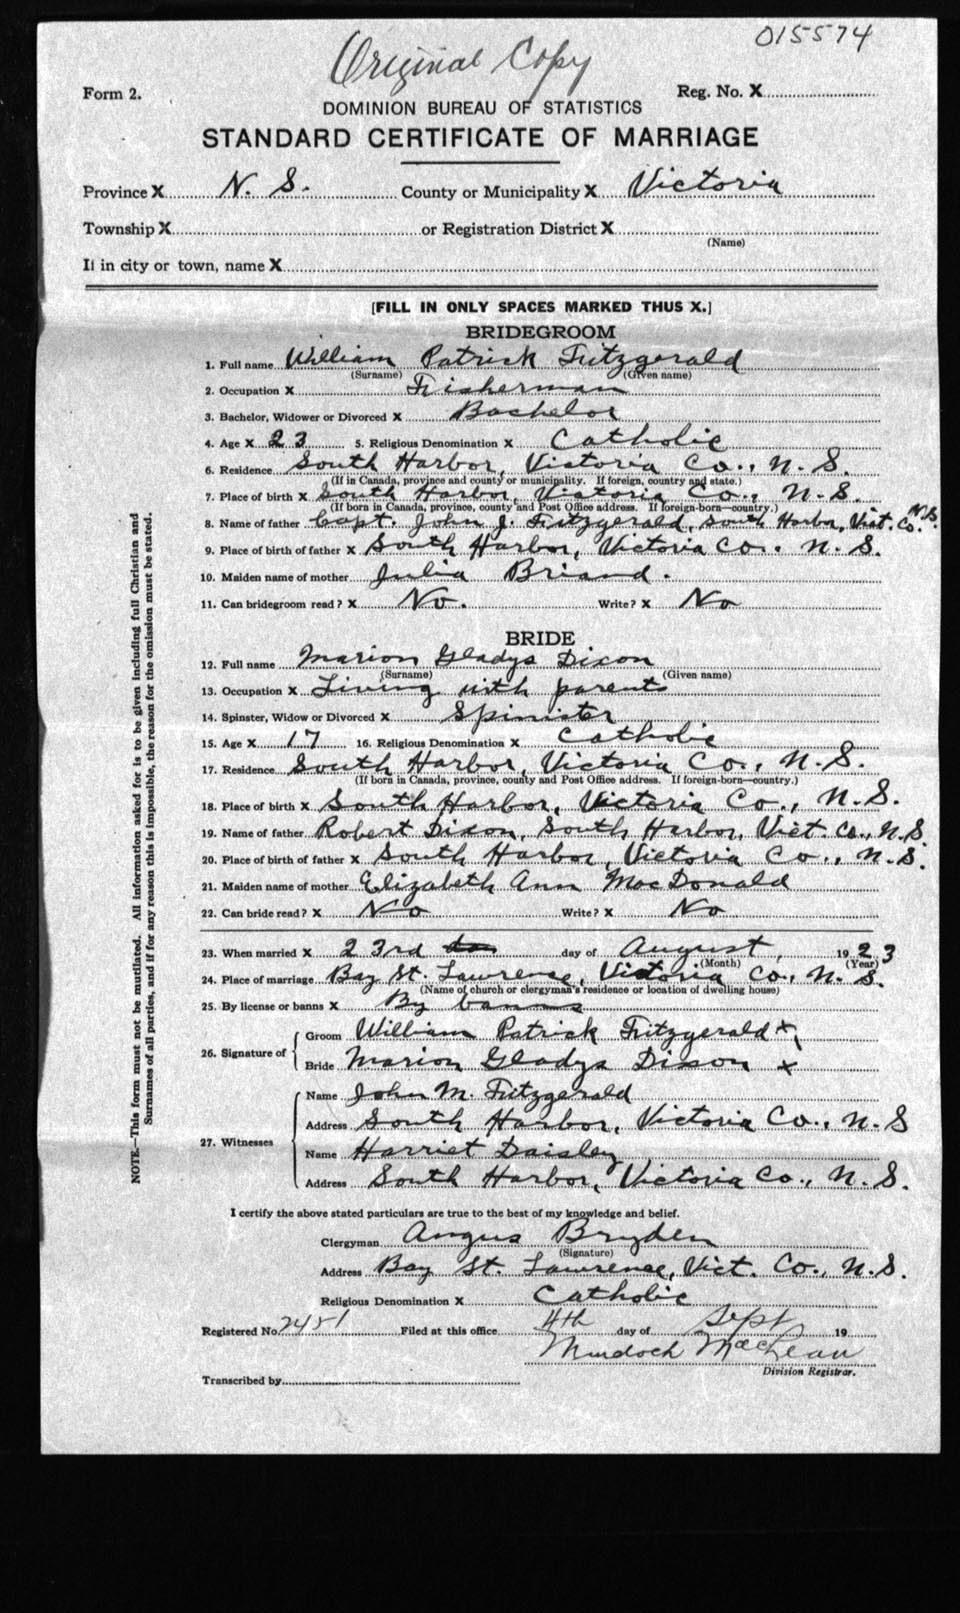 015574
Original Copy
Form 2.
Reg. No. X
DOMINION BUREAU OF STATISTICS
STANDARD CERTIFICATE OF MARRIAGE
Province X N. S. County or Municipality X Victoria
Township X or Registration District X
(Name)
If in city or town, name X
[FILL IN ONLY SPACES MARKED THUS X.]
BRIDEGROOM
1. Full name William Patrick Fitzgerald
(Surname) (Given name)
2. Occupation X Fisherman
3. Bachelor, Widower or Divorced X Bachelor
4. Age X 23 5. Religious Denomination X Catholic
6. Residence South Harbor, Victoria Co., N. S.
(If in Canada, province and county or municipality. If foreign, country and state.)
7. Place of birth X South Harbor, Victoria Co., N. S.
(If born in Canada, province, county and Post Office address. If foreign-born—country.)
8. Name of father Capt. John J. Fitzgerald, South Harbor, Vict. Co. N.S.
9. Place of birth of father X South Harbor, Victoria Co. N. S.
10. Maiden name of mother Julia Briand.
11. Can bridegroom read? X No. Write? X No
BRIDE
12. Full name Marion Gladys Dixon
(Surname) (Given name)
13. Occupation X Living with parents
14. Spinster, Widow or Divorced X Spinister
15. Age X 17 16. Religious Denomination X Catholic
17. Residence South Harbor, Victoria Co., N. S.
(If born in Canada, province, county and Post Office address. If foreign-born—country.)
18. Place of birth X South Harbor, Victoria Co., N. S.
19. Name of father Robert Dixon, South Harbor, Vict. Co., N. S.
20. Place of birth of father X South Harbor, Victoria Co., N. S.
21. Maiden name of mother Elizabeth Ann MacDonald
22. Can bride read? X No Write? X No
23. When married X 23rd day of August, 1923
(Month) (Year)
24. Place of marriage Bay St. Lawrence, Victoria Co., N. S.
(Name of church or clergyman's residence or location of dwelling house)
25. By license or banns X By banns
26. Signature of
Groom William Patrick Fitzgerald X
Bride Marion Gladys Dixon X
27. Witnesses
Name John M. Fitzgerald
Address South Harbor, Victoria Co., N. S
Name Harriet Daisley
Address South Harbor, Victoria Co., N. S.
I certify the above stated particulars are true to the best of my knowledge and belief.
Clergyman Angus Bryden
(Signature)
Address Bay St. Lawrence, Vict. Co., N. S.
Religious Denomination X Catholic
Registered No. 2451 Filed at this office 4th day of Sept 19
Murdoch MacLean
Division Registrar.
Transcribed by
NOTE.—This form must not be mutilated. All information asked for is to be given including full Christian and
Surnames of all parties, and if for any reason this is impossible, the reason for the omission must be stated.